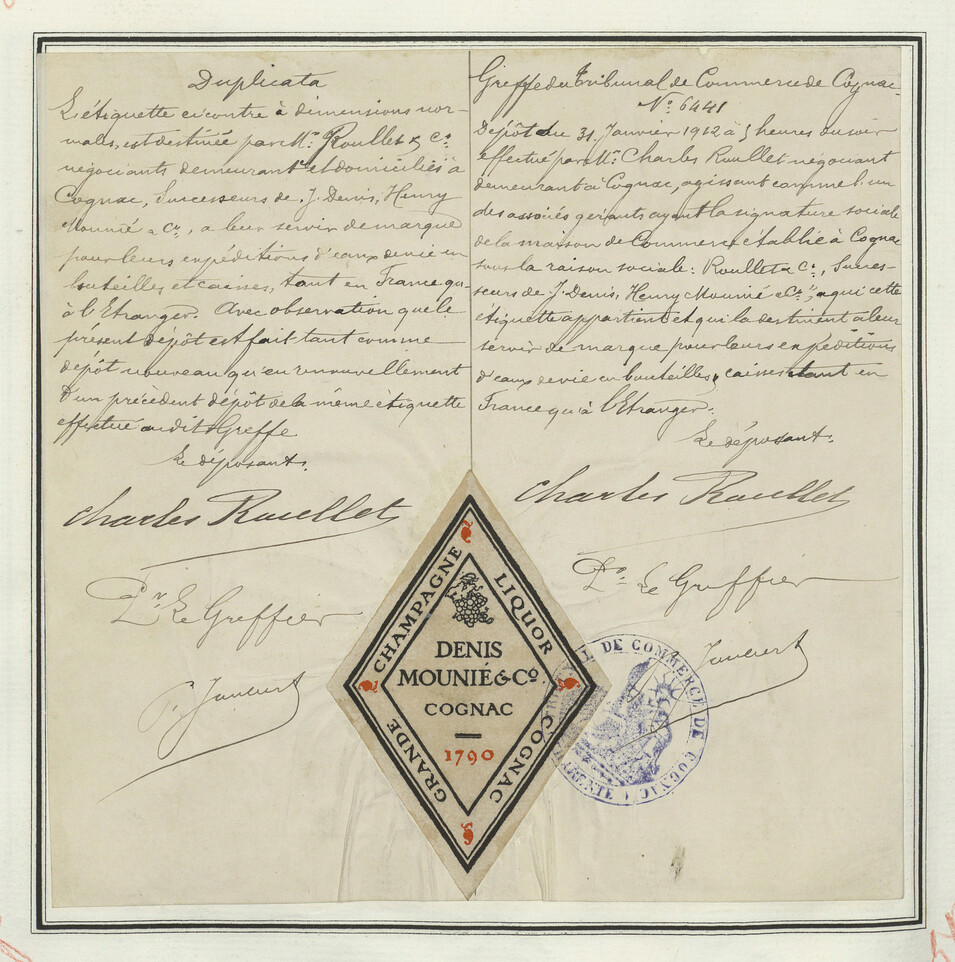 Duplicata
L'étiquette ci contre à dimensions nor-
males, est destinée par Mrs Roullet & Co
négociants demeurant et domiciliés à
Cognac, Successeurs de J. Denis, Henry
Mounié & Co, a leur servir de marque
pour leurs expéditions d'eaux de vie en
bouteilles et caisses, tant en France qu'
à l'Etranger. Avec observation que le
présent dépôt est fait tant comme
dépôt nouveau qu'en renouvellement
d'un précédent dépôt de la même étiquette
effectué audit Greffe
Le déposant.
Charles Roullet
Pr Le Greffier
Greffe du Tribunal de Commerce de Cognac.
No 6441
Dépôt du 31 Janvier 1912 à 5 heures du soir
effectué par Mr Charles Roullet négociant
demeurant à Cognac, agissant comme l'un
des associés gérants ayant la signature sociale
de la maison de Commerce établie à Cognac
sous la raison sociale: Roullet & Co, Succes-
seurs de J. Denis, Henry Mounié & Co", a qui cette
étiquette appartient et qui la destinent à leur
servir de marque pour leurs expéditions
d'eaux de vie en bouteilles, caisses tant en
France qu'à l'Etranger.
Le déposant.
Charles Roullet
Po Le Greffier
GRANDE CHAMPAGNE
LIQUOR COGNAC
DENIS
MOUNIÉ & Co.
COGNAC
1790
DE COMMERCE DE COGNAC